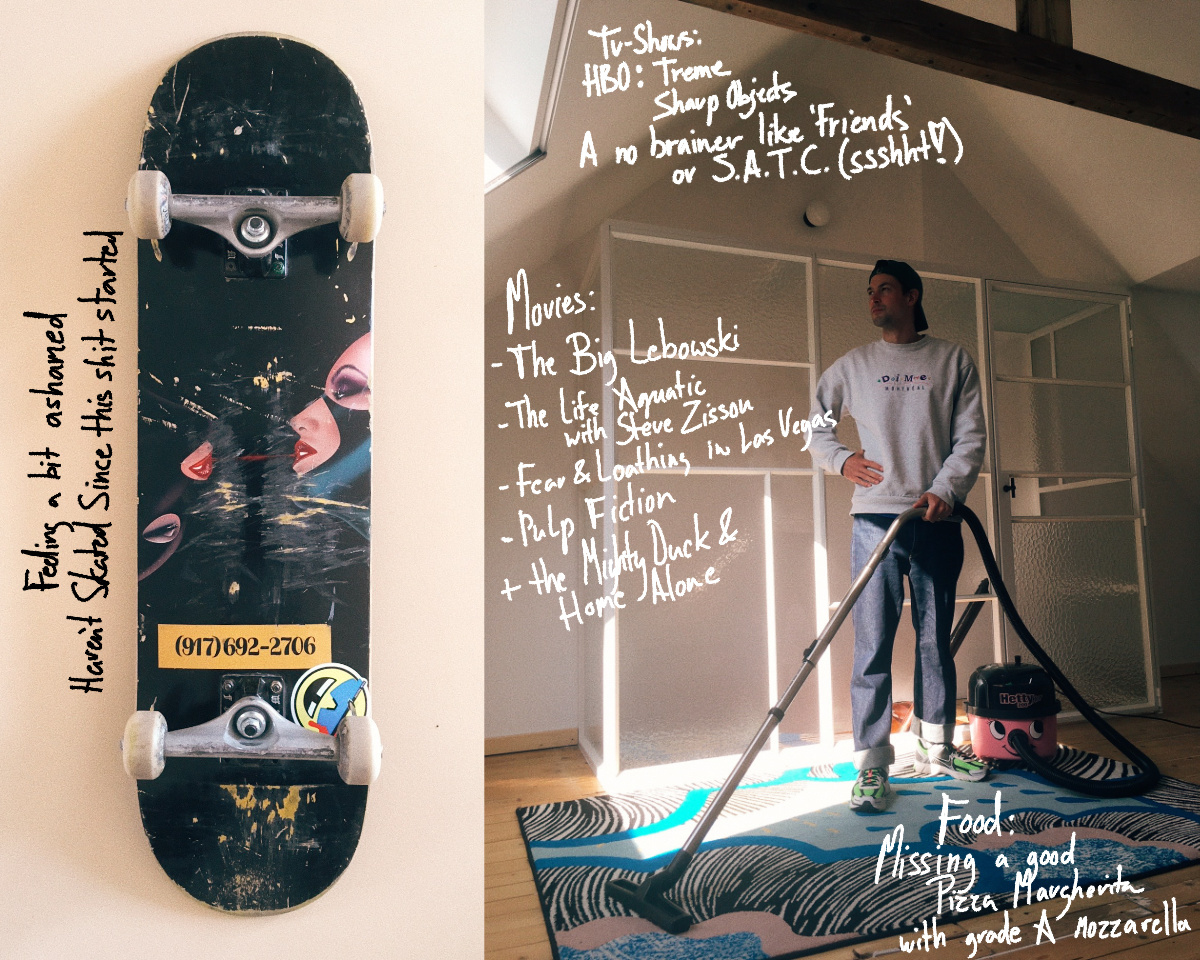 Feeling a bit ashamed
Haven't Skated Since this shit started
(917)692-2706
Tv-Shows:
HBO: Treme
Sharp Objects
A no brainer like 'Friends'
or S.A.T.C. (ssshht!)
Movies:
- The Big Lebowski
- The Life Aquatic
with Steve Zisson
- Fear & Loathing in Las Vegas
- Pulp Fiction
+ the Mighty Duck &
Home Alone
MONTRÉAL
Hetty
Food:
Missing a good
Pizza Margherita
with grade A Mozzarella